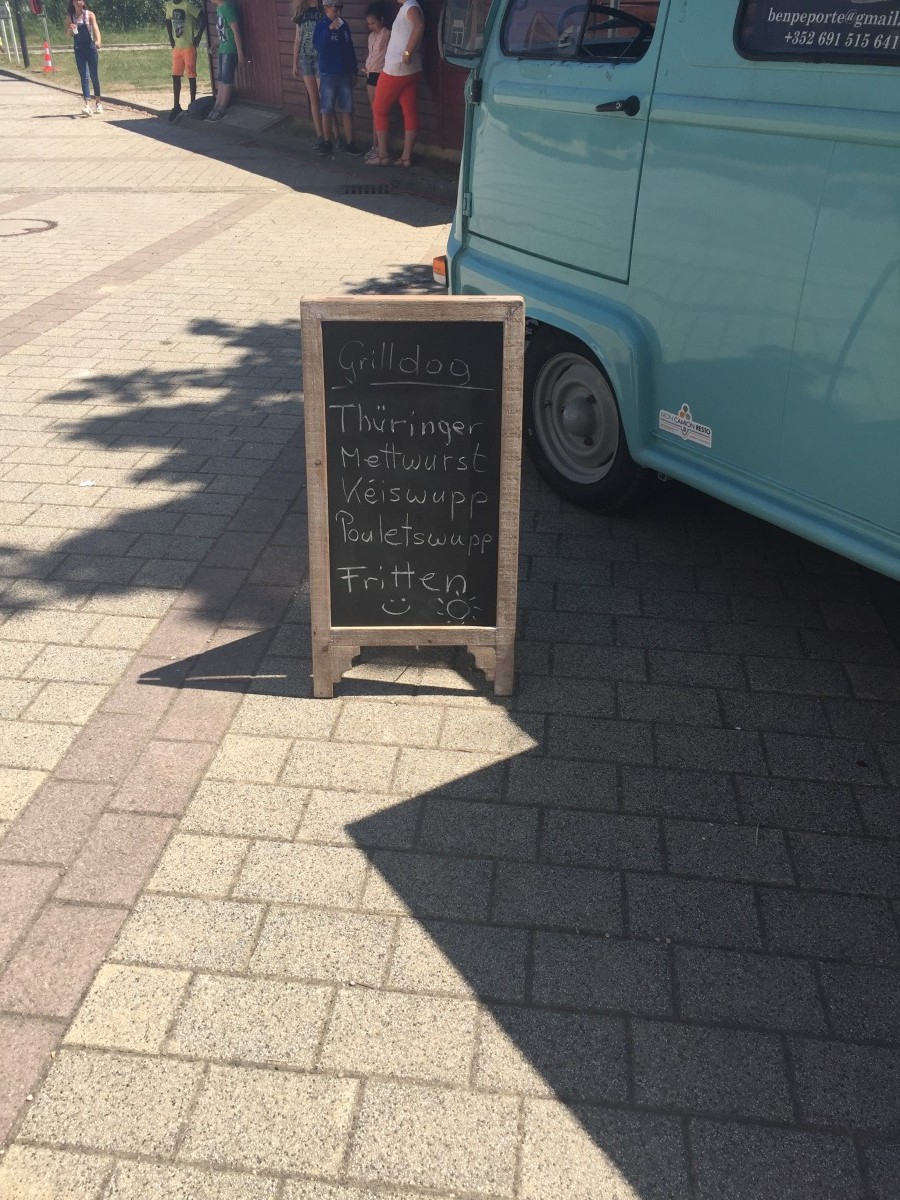 benpeporte@gmail.
+352 691 515 641
Grilldog
Thüringer
Mettwurst
Kéiswupp
Pouletswupp
Fritten
MON CAMION RESTO